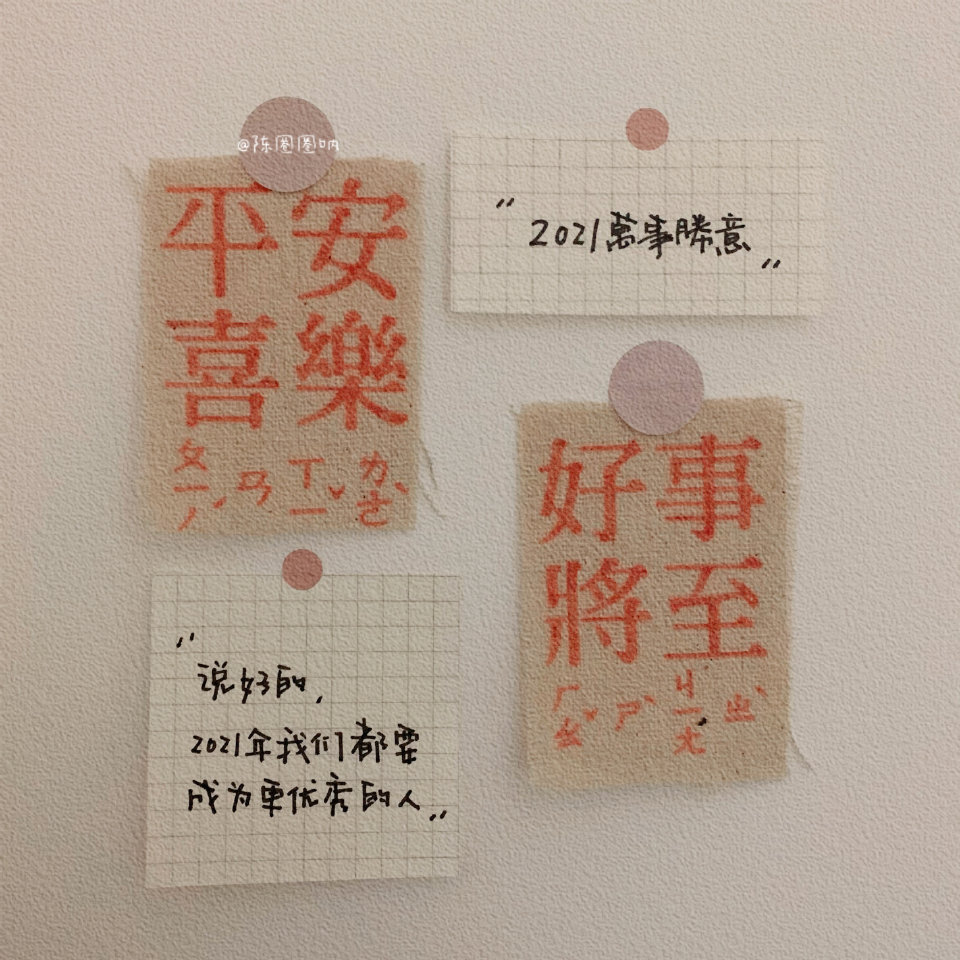 @陈圈圈呐
平安
喜樂
ㄆㄧㄥˊ ㄢ ㄒㄧˇ ㄌㄜˋ
"2021萬事勝意"
好事
將至
ㄏㄠˇ ㄕˋ ㄐㄧㄤ ㄓˋ
"说好的,
2021年我们都要
成为更优秀的人"